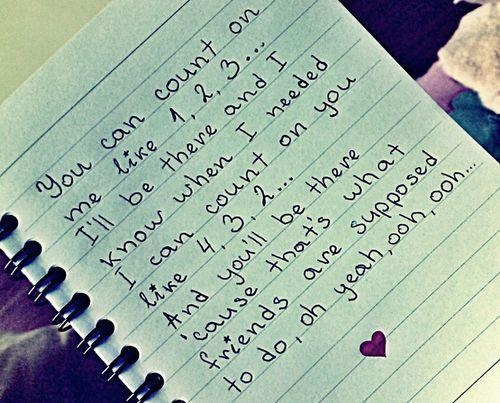 You can count on
me like 1, 2, 3...
I'll be there and I
know when I needed
I can count on you
like 4, 3, 2...
And you'll be there
'cause that's what
friends are supposed
to do, oh yeah, ooh, ooh...